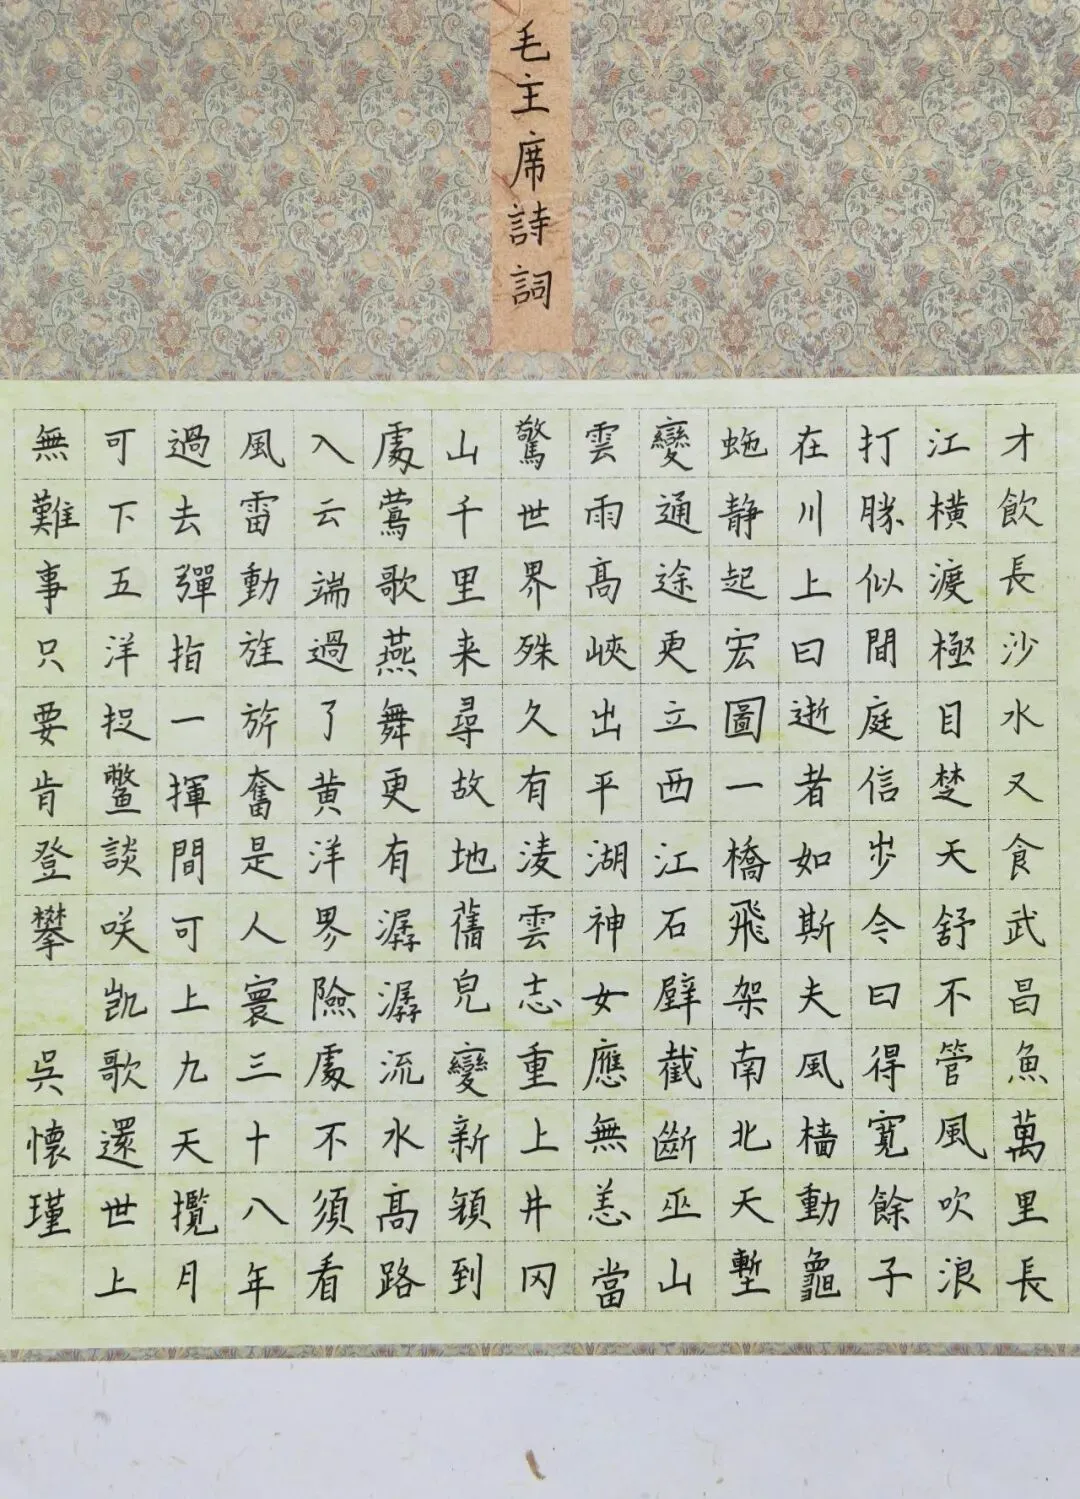 毛主席詩詞
才飲長沙水又食武昌魚萬里長
江橫渡極目楚天舒不管風吹浪
打勝似間庭信步今曰得寬餘子
在川上曰逝者如斯夫風檣動龜
蛇静起宏圖一橋飛架南北天塹
變通途更立西江石壁截斷巫山
雲雨高峽出平湖神女應無恙當
驚世界殊久有凌雲志重上井冈
山千里来尋故地舊皃變新顏到
處鶯歌燕舞更有潺潺流水高路
入云端過了黄洋界險處不須看
風雷動旌旂奮是人寰三十八年
過去彈指一揮間可上九天攬月
可下五洋捉鱉談咲凱歌還世上
無難事只要肯登攀 吳懷瑾